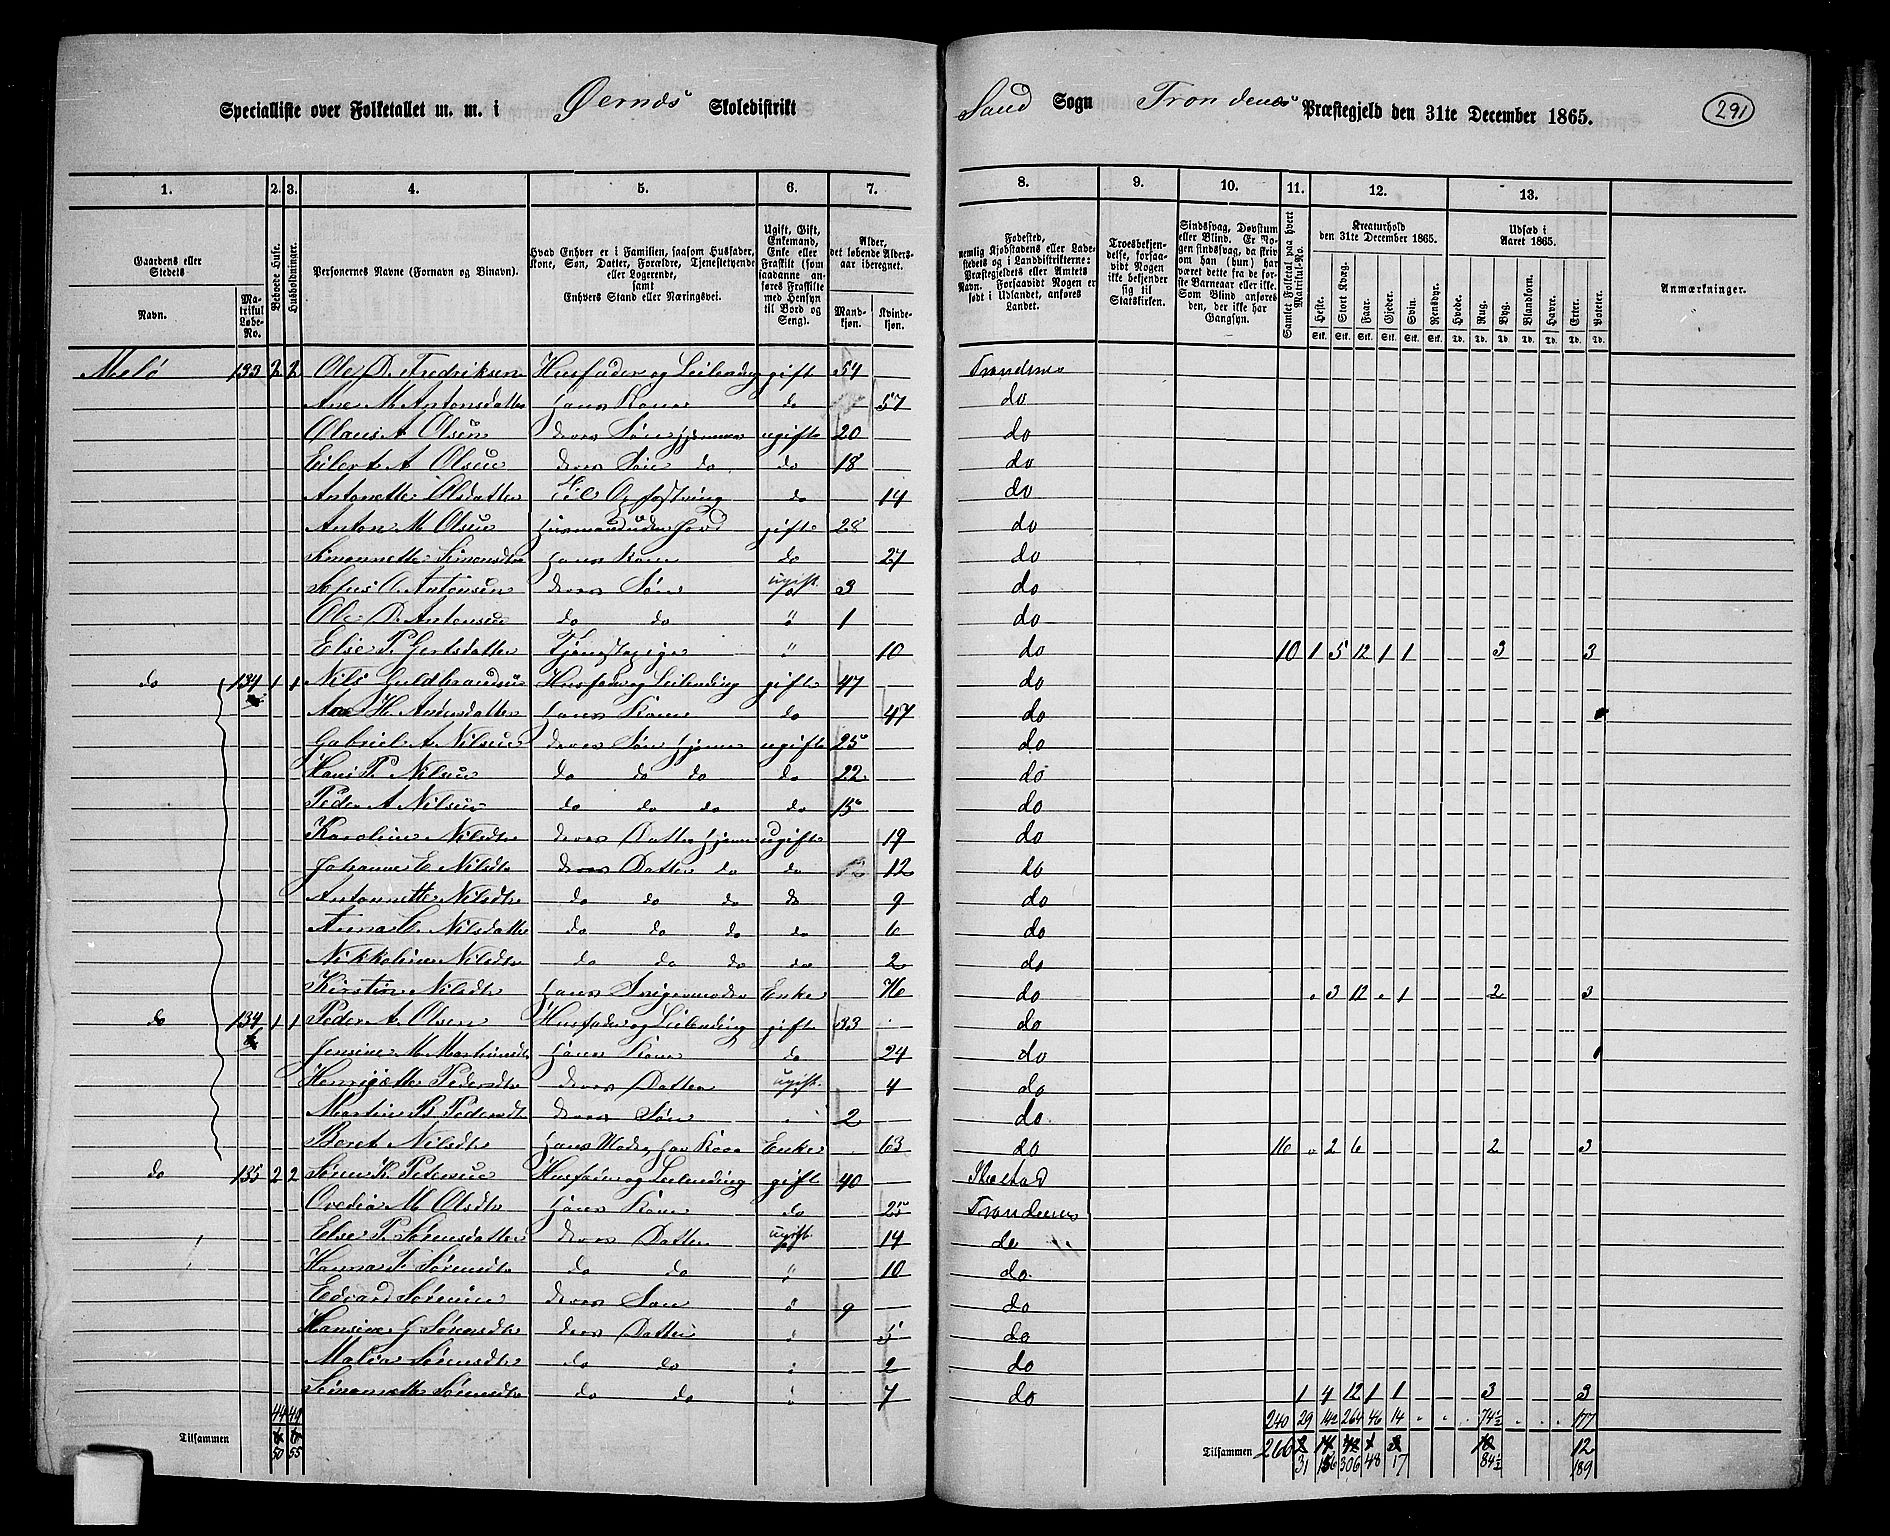 Specialliste over Folketallet m. m. i Øernes Skoledistrikt Sand Sogn Trondenes Præstegjeld den 31te December 1865. 291
1. 2. 3. 4. 5. 6. 7. 8. 9. 10. 11. 12. 13.
Gaardens eller Stedets Navn. Matrikul Løbe-No. Beboede Huse. Husholdninger. Personernes Navne (Fornavn og Tilnavn).
Hvad Enhver er i Familien, saasom Husfader, Kone, Søn, Datter, Forældre, Tjenestetyende eller Logerende, samt Enhvers Stand eller Næringsvei.
Ugift, Gift, Enkemand, Enke eller Fraskilt (som saadanne anføres Fraskilte med Hensyn til Bord og Seng).
Alder, det løbende Aldersaar iberegnet. Mandkjøn. Kvindekjøn.
Anmærkninger.
Kreaturhold den 31te December 1865. Heste. Stort Kvæg. Faar. Gjeder. Svin. Rensdyr.
Udsæd i Aaret 1865. Hvede. Rug. Byg. Blandkorn. Havre. Erter. Poteter.
Melø 133 2 2 Ole D. Fredriksen Husfader og Leilending gift 54 Trondenes
Ane M. Antonsdatter hans Kone do 57 do
Olaus A Olsen deres Søn hjemme ugift 20 do
Eilert A Olsen deres Søn do do 18 do
Antonette Olsdatter do 14 do
Anton M Olsen gift 28 do
Simonette Simonsdtr hans Kone do 27 do
Sofus O. Antonsen deres Søn ugift 3 do
Ole D. Antonsen do do " 1 do
Else P. Gertsdatter Tjenestepige " 10 do 10 1 5 12 1 1 3 3
do 134 1 1 Nils Guldbrandsen Husfader og Leilending gift 47 do
Ane H. Andersdatter hans Kone do 47 do
Gabriel A Nilsen deres Søn hjemme ugift 25 do
Hans P. Nilsen do do do do 22 do
Peder A Nilsen do do do do 15 do
Karoline Nilsdtr deres Datter hjemme ugift 19 do
Johanne E Nilsdtr deres Datter do do 12 do
Antonnette Nilsdtr do do do do 9 do
Anna C. Nilsdatter do do do do 6 do
Nikkoline Nilsdtr do do do do 2 do
Kirstine Nilsdtr hans Svigermoder Enke 76 do 3 12 1 2 3
do 134 1 1 Peder A. Olsen Husfader og Leilending gift 33 do
Jensine M. Martinusdtr hans Kone do 24 do
Henrigætte Pedersdtr deres Datter ugift 4 do
deres Søn 2 do
Beret Nilsdtr Enke 63 do 16 2 6 2 3
do 135 2 2 Søren K. Petersen Husfader og Leilending gift 40
Ovedia M Olsdtr hans Kone do 25 Trondenes
Else P. Sørensdatter deres Datter ugift 14 do
Hanna P. Sørensdtr do do " 10 do
Edvard Sørensen deres Søn " 9 do
Hansine G Sørensdtr deres Datter " 5 do
Malia Sørensdtr do do " 2 do
Simonette Sørensdtr do do " 7 do 1 4 12 1 1 3 3
44 49 240 29 142 264 46 14 74½ 177
Tilsammen 50 55 Tilsammen 266 12
31 156 306 48 17 84½ 189